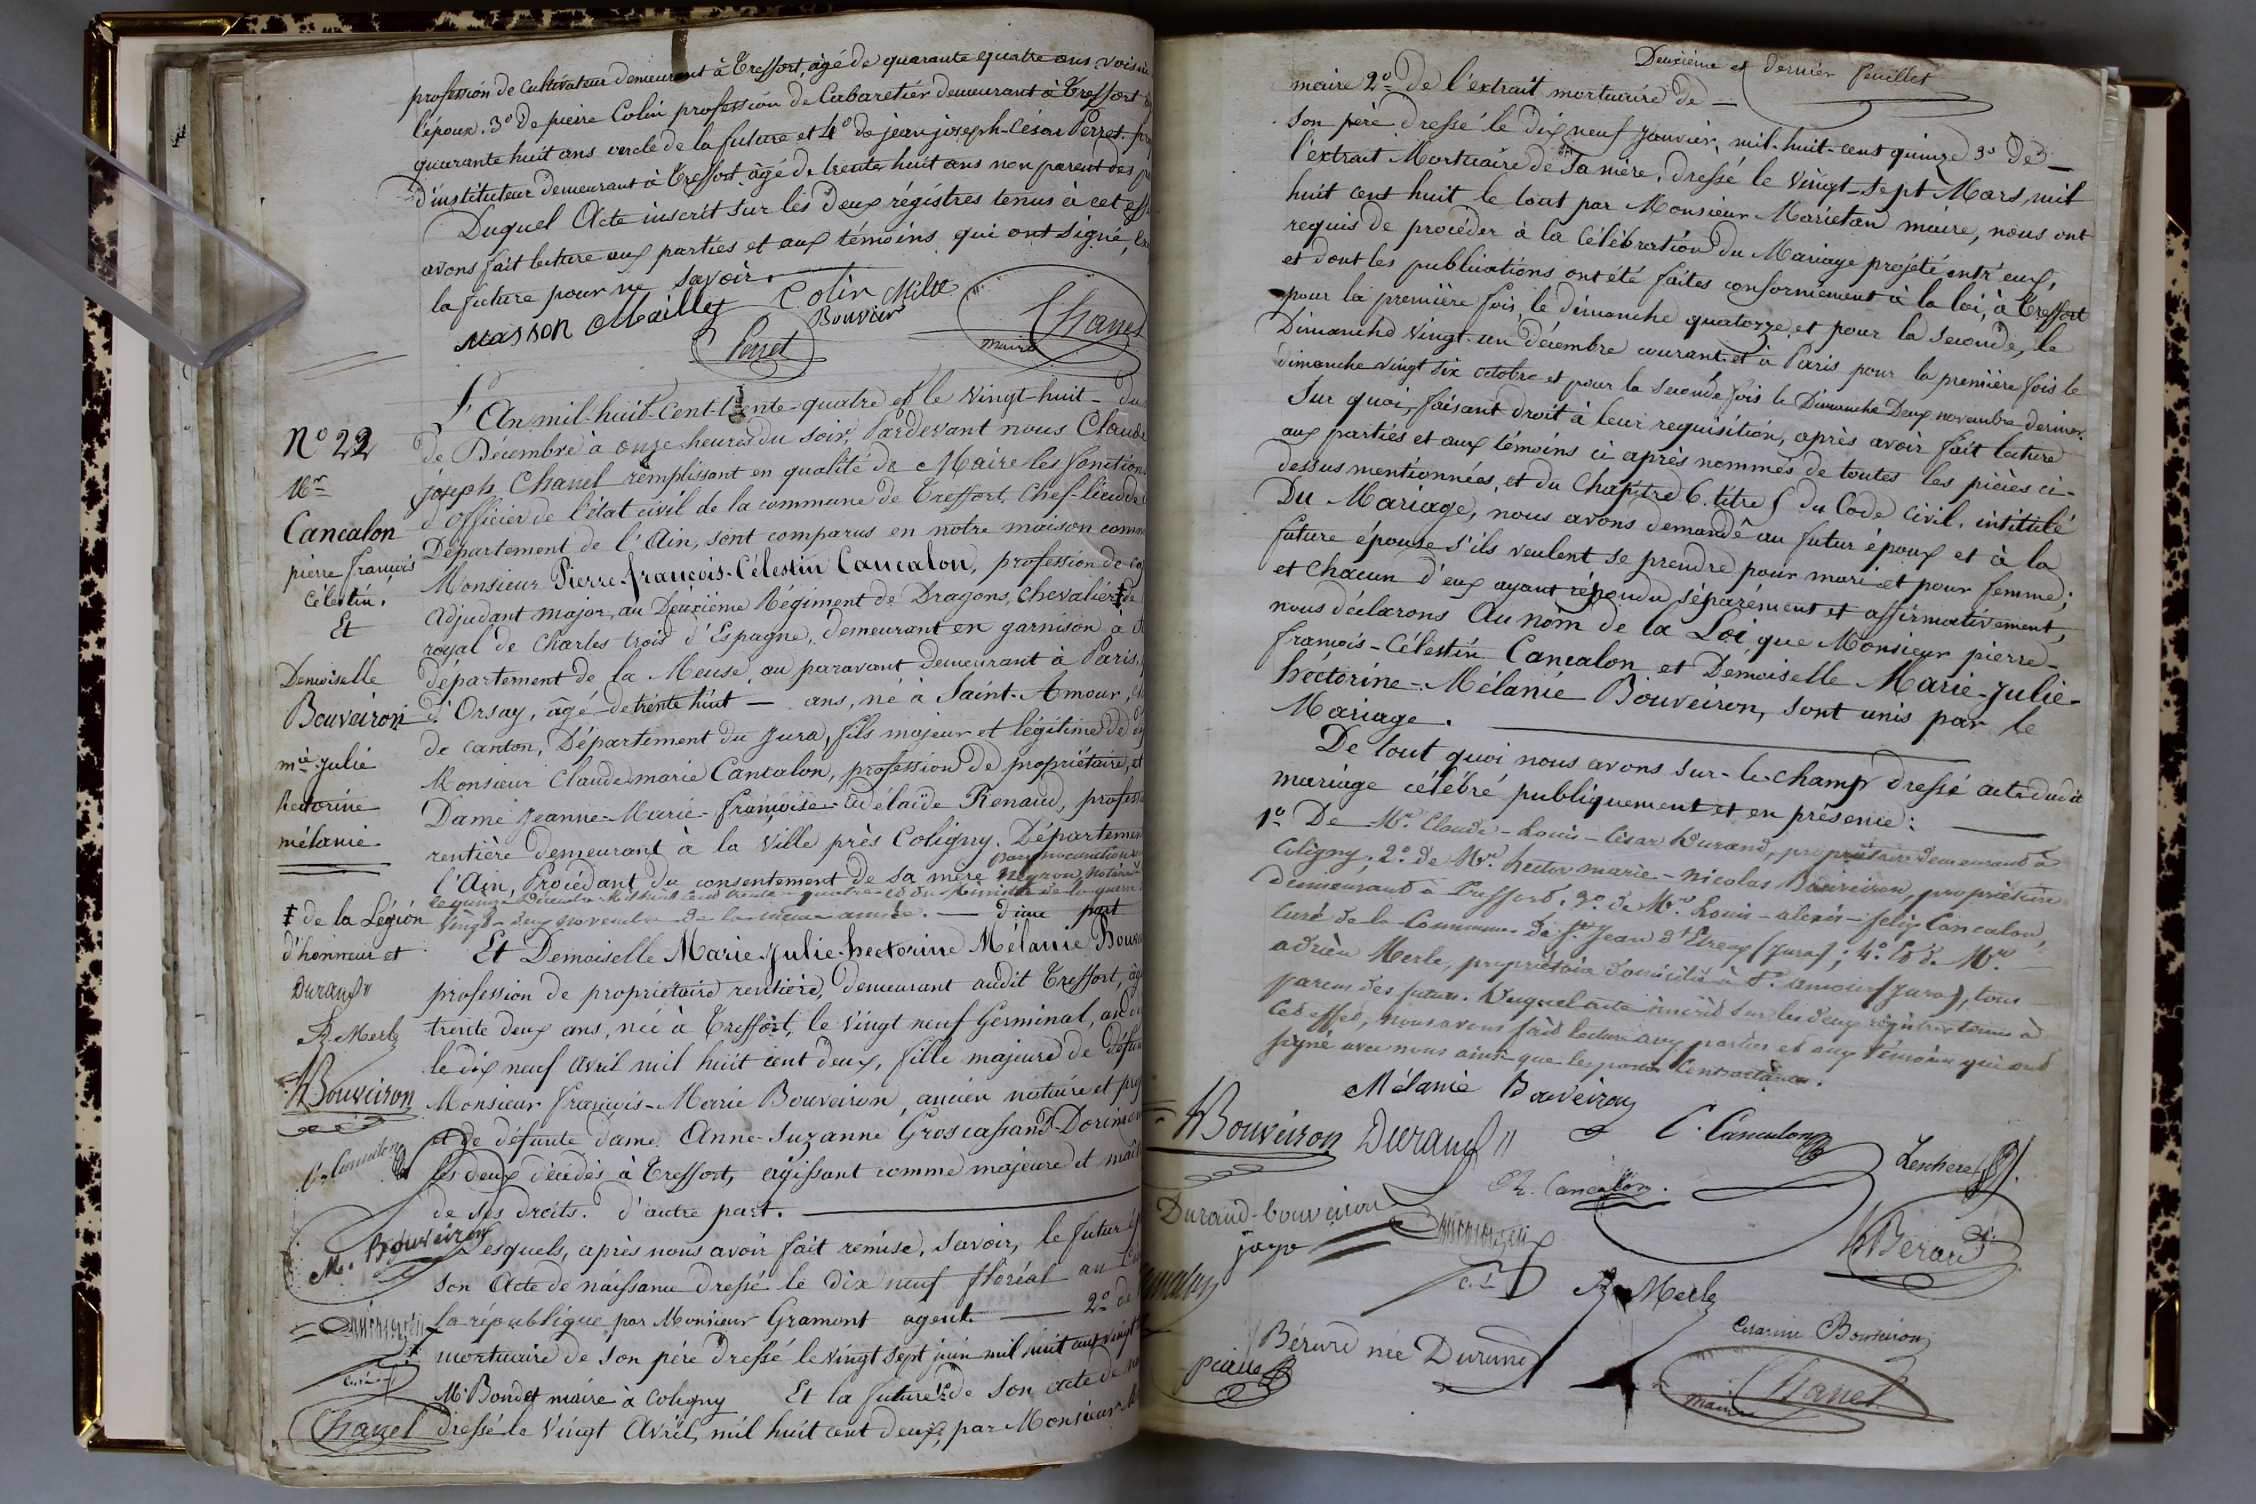 profession de Cultivateur demeurant à Treffort, âgé de quarante quatre ans voisin
l'époux. 3º de pierre Colin profession de Cabaretier demeurant à Treffort
quarante huit ans oncle de la future et 4º de jean joseph-César Perret
d'instituteur demeurant à Treffort âgé de trente huit ans non parent des
Duquel Acte inscrit sur les deux régistres tenus à cet
avons fait lecture aux parties et aux témoins qui ont signé,
la future pour ne savoir.
Masson Maillet Colin Millet
Bouvier
Perret
Chanel
maire
Nº 22
Mr
Cancalon
pierre françois
Célestin.
Et
Demoiselle
Bouveiron
mie Julie
hectorine
mélanie
‡ de la Légion
d'honneur et
Durand
A. Merle
Bouveiron
C. Cancalon
M. Bouveiron
Chanel
L'An mil-huit-cent-trente-quatre et le vingt-huit - du
de Décembre à onze heures du soir, Pardevant nous Claude
joseph Chanel remplissant en qualité de Maire les fonctions
d'officier de l'état civil de la commune de Treffort, Chef-lieu de
Département de l'Ain, sont comparus en notre maison comm
Monsieur Pierre-françois-Célestin Cancalon, profession de
adjudant major, au Deuxième Régiment de Dragons, chevalier ‡ de
royal de Charles trois d'Espagne, demeurant en garnison à
département de la Meuse, au paravant demeurant à Paris,
d'Orsay, âgé de trente huit — ans, né à Saint-Amour,
de canton, Département du Jura, fils majeur et légitime de
Monsieur Claude marie Cancalon, profession de propriétaire, et
Dame Jeanne-Marie-françoise-Adélaïde Renaud, profess
rentière demeurant à la Ville près Coligny. Département
l'Ain, Procédant du consentement de sa mère par procuration
notaire
vingt-deux novembre de la même année. — d'une part
Et Demoiselle Marie-Julie-hectorine Mélanie Bouv
profession de propriétaire rentière, demeurant audit Treffort,
trente deux ans, née à Treffort, le vingt neuf Germinal, an
le dix neuf avril mil huit cent deux, fille majeure de défun
Monsieur françois-Marie Bouveiron, ancien notaire et
et de défunte dame Anne-Suzanne Groscassand-Dorimon
les deux décédés à Treffort, agissant comme majeure et
de ses droits. d'autre part.
Lesquels, après nous avoir fait remise, Savoir, le futur
son Acte de naissance dressé le dix neuf floréal an
la république par Monsieur Gramont agent. — 2º de
mortuaire de son père dressé le vingt sept juin mil huit cent vingt
Mr Bondet maire à Coligny Et la future 1º de son acte de
dressé le vingt Avril, mil huit cent deux, par Monsieur
Deuxième et dernier feuillet
maire 2º de l'extrait mortuaire de —
son père dressé le dix neuf Janvier, mil-huit-cent quinze 3º de —
l'extrait Mortuaire de Sa mère, dressé le vingt-sept Mars, mil
huit cent huit le tout par Monsieur Marietan maire, nous ont
requis de procéder à la Célébration du Mariage projeté entr'eux,
et dont les publications ont été faites conformement à la loi, à Treffort
pour la première fois, le dimanche quatorze et pour la seconde, le
Dimanche vingt-un décembre courant et à Paris pour la première fois le
dimanche vingt six octobre et pour la seconde fois le Dimanche Deux novembre dernier.
Sur quoi, faisant droit à leur requisition, après avoir fait lecture
aux parties et aux témoins ci après nommés de toutes les pièces ci-
dessus mentionnées, et du Chapitre 6. titre 5 du Code civil, intitulé
Du Mariage, nous avons demandé au futur époux et à la
future épouse s'ils veulent se prendre pour mari et pour femme;
et chacun d'eux ayant répondu séparément et affirmativement,
nous déclarons Au nom de la Loi que Monsieur pierre-
françois-Célestin Cancalon et Demoiselle Marie-Julie-
hectorine-Mélanie Bouveiron, sont unis par le
Mariage.
De tout quoi nous avons sur-le-champ dressé acte dudit
mariage célébré publiquement et en présence:
1º De Mr. Claude-Louis-César Durand, propriétaire demeurant à
Coligny. 2º de Mr. hector marie-nicolas Bouveiron, propriétaire
demeurant à Treffort. 3º de Mr. Louis-alexis-felix Cancalon,
Curé de la Commune de St Jean d'Etreux (Jura); 4º Et de Mr.
adrien Merle, propriétaire domicilié à St. amour (Jura), tous
parens des futurs. Duquel acte inscrit sur les deux régistres tenus à
cet effet, nous avons fait lecture aux parties et aux témoins qui ont
signé avec nous ainsi que les parties Contractantes.
Mélanie Bouveiron
Bouveiron Durand C. Cancalon
Cancalon
Durand-bouveiron
Bérard
A. Merle
Césarine Bouveiron
Bérard née Durand
Chanel
maire